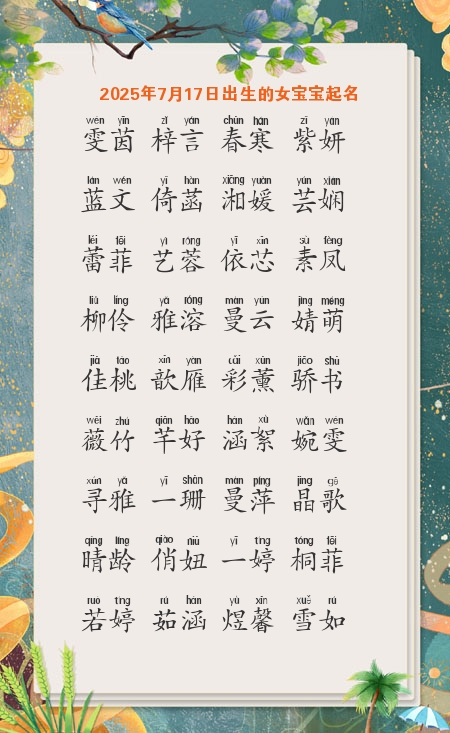 2025年7月17日出生的女宝宝起名
wén yīn zǐ yán chūn hán zǐ yán
雯茵 梓言 春寒 紫妍
lán wén yǐ hàn xiāng yuàn yún xián
蓝文 倚菡 湘媛 芸娴
lěi fēi yì róng yī xīn sù fèng
蕾菲 艺蓉 依芯 素凤
liǔ líng yǎ róng màn yún jìng méng
柳伶 雅溶 曼云 婧萌
jiā táo xīn yàn cǎi xūn jiāo shū
佳桃 歆雁 彩薰 骄书
wēi zhú qiān hǎo hán xù wǎn wén
薇竹 芊好 涵絮 婉雯
xún yǎ yī shān màn píng jīng gē
寻雅 一珊 曼萍 晶歌
qíng líng qiào niū yī tíng tóng fēi
晴龄 俏妞 一婷 桐菲
ruò tíng rú hán yù xīn xuě rú
若婷 茹涵 煜馨 雪如